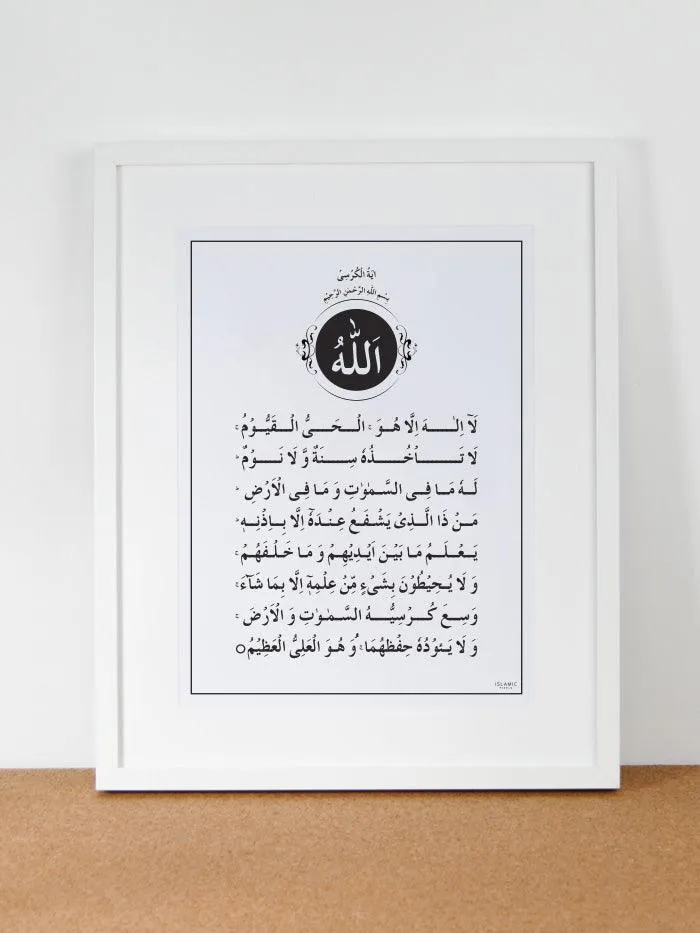 اٰيَةُ الْكُرْسِىْ
بِسْمِ اللهِ الرَّحْمٰنِ الرَّحِيْمِ
اَللّٰهُ
لَآ اِلٰهَ اِلَّا هُوَ ۚ الْحَىُّ الْقَيُّوْمُ ۚ
لَا تَاْخُذُهٗ سِنَةٌ وَّ لَا نَوْمٌ ؕ
لَهٗ مَا فِى السَّمٰوٰتِ وَ مَا فِى الْاَرْضِ ؕ
مَنْ ذَا الَّذِىْ يَشْفَعُ عِنْدَهٗٓ اِلَّا بِاِذْنِهٖ ؕ
يَعْلَمُ مَا بَيْنَ اَيْدِيْهِمْ وَ مَا خَلْفَهُمْ ۚ
وَ لَا يُحِيْطُوْنَ بِشَىْءٍ مِّنْ عِلْمِهٖٓ اِلَّا بِمَا شَآءَ ۚ
وَسِعَ كُرْسِيُّهُ السَّمٰوٰتِ وَ الْاَرْضَ ۚ
وَ لَا يَـُٔوْدُهٗ حِفْظُهُمَا ۚ وَ هُوَ الْعَلِىُّ الْعَظِيْمُ ○
ISLAMIC